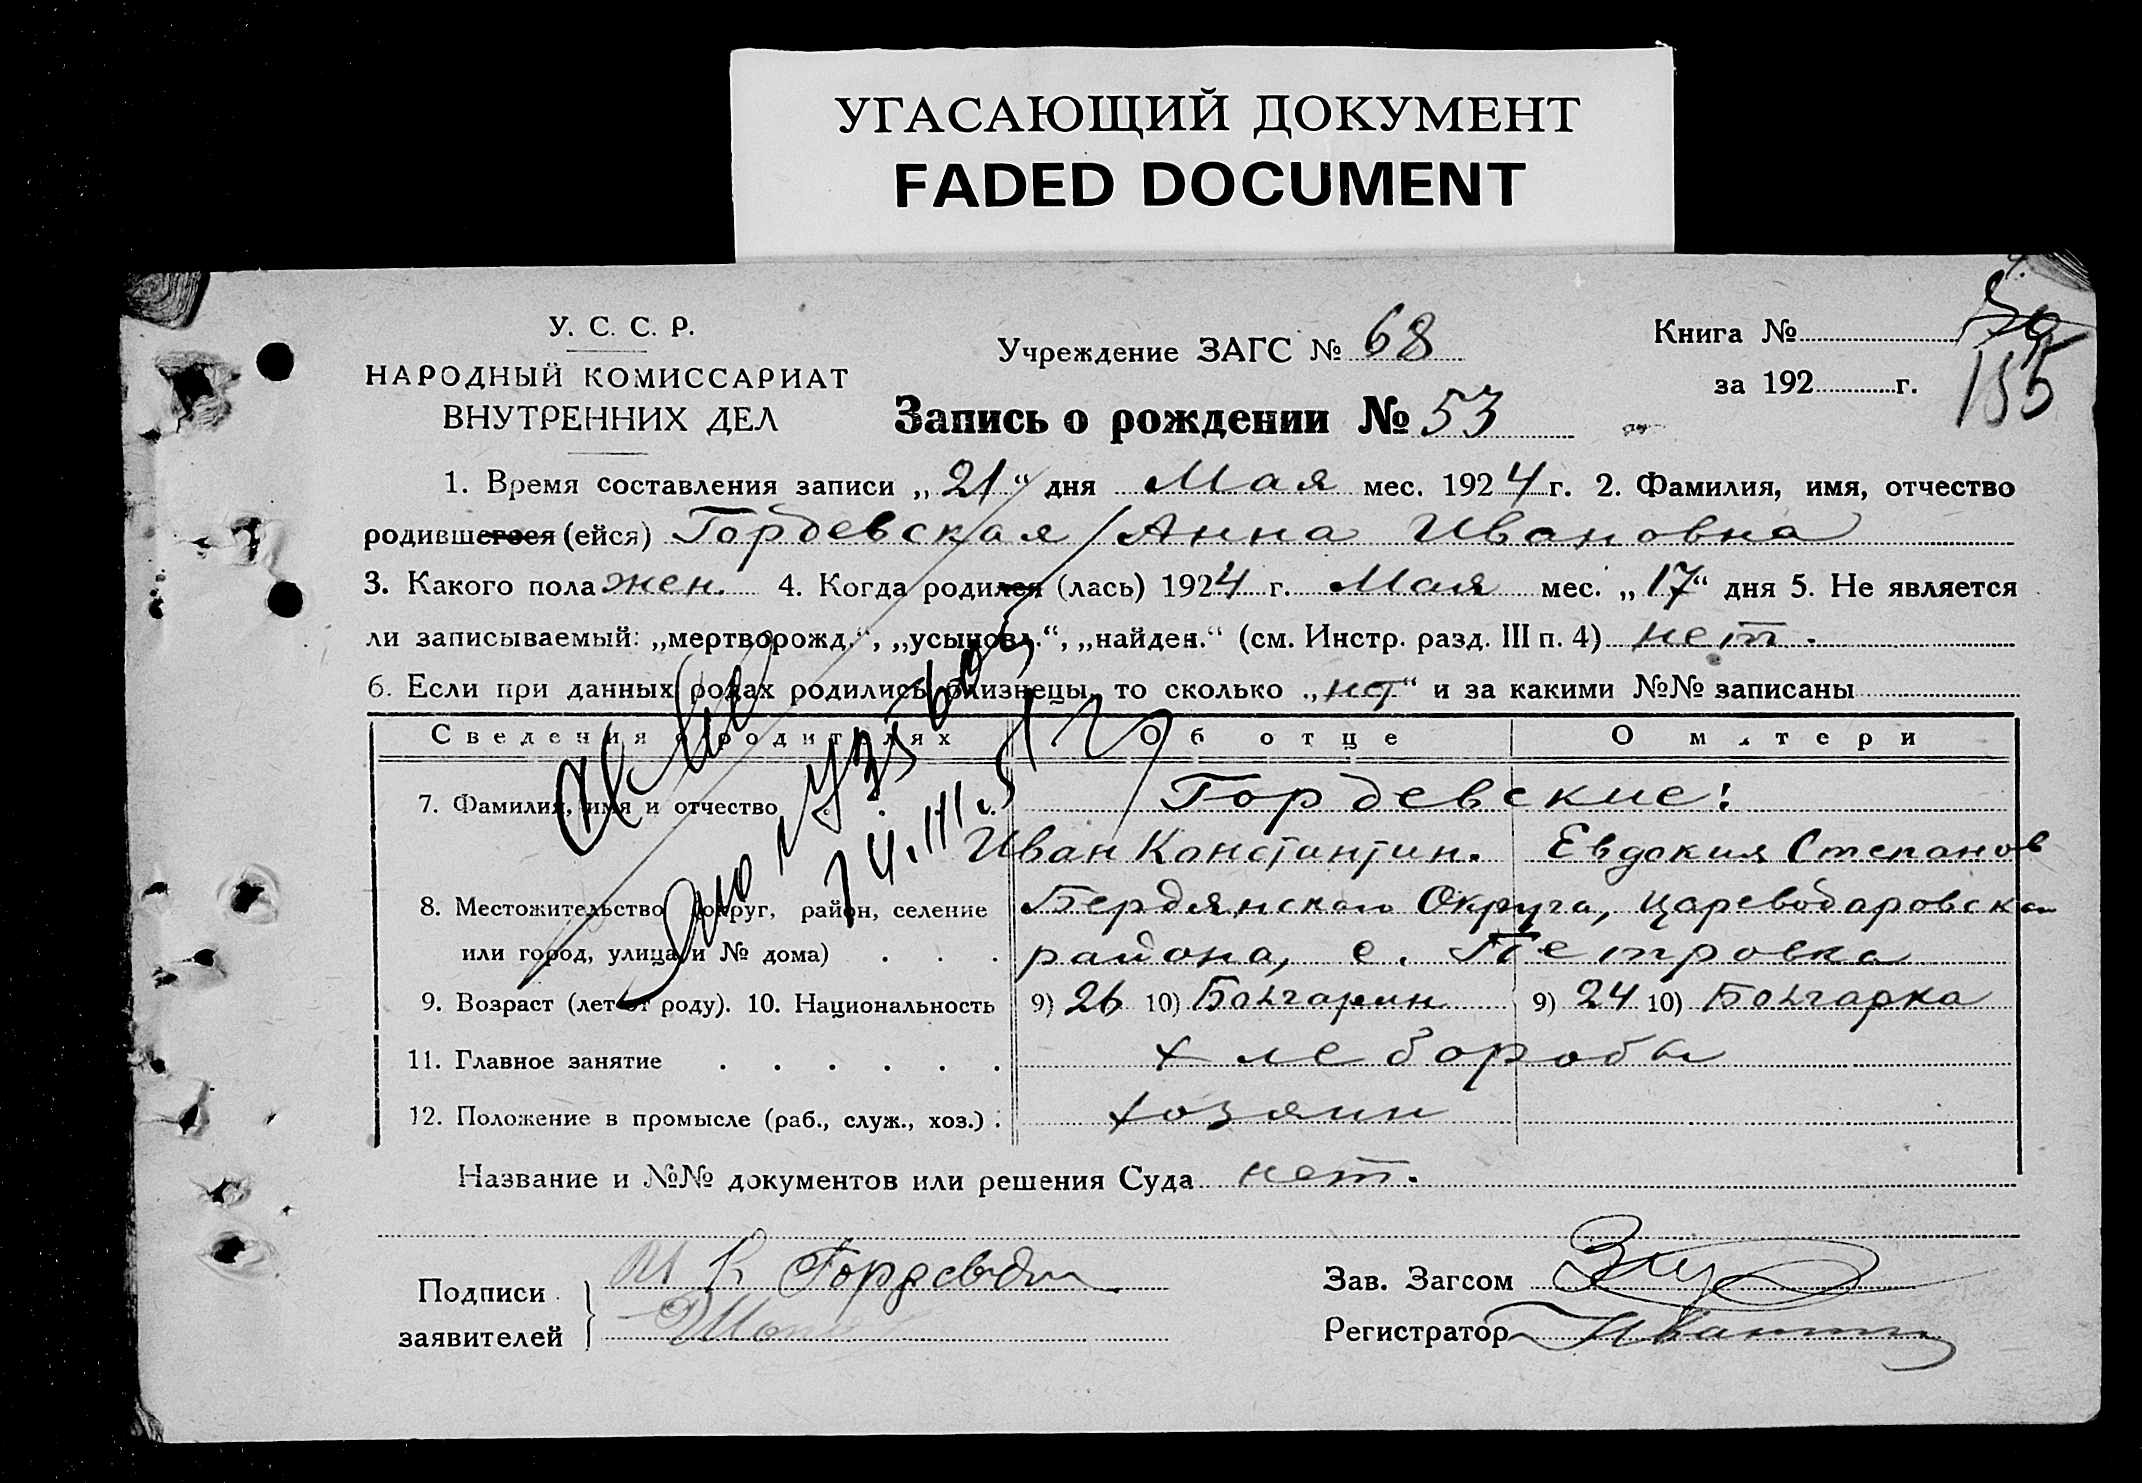 УГАСАЮЩИЙ ДОКУМЕНТ
FADED DOCUMENT
У. С. С. Р.
НАРОДНЫЙ КОМИССАРИАТ
ВНУТРЕННИХ ДЕЛ
Учреждение ЗАГС № 68
Запись о рождении № 53
Книга №
за 192 г.
155
1. Время составления записи „21“ дня Мая мес. 1924 г. 2. Фамилия, имя, отчество
родившегося (ейся) Гордевская Анна Ивановна
3. Какого пола жен. 4. Когда родился (лась) 1924 г. Мая мес. „17“ дня 5. Не является
ли записываемый: „мертворожд.“, „усынов.“, „найден.“ (см. Инстр. разд. III п. 4) нет.
6. Если при данных родах родились близнецы, то сколько „нет“ и за какими №№ записаны
Сведения о родителях Об отце О матери
7. Фамилия, имя и отчество Гордевские:
Иван Константин. Евдокия Степанов
8. Местожительство (округ, район, селение Бердянского Округа, Цареводаровского
или город, улица и № дома) . . . района, с. Петровка
9. Возраст (лет от роду). 10. Национальность 9) 26 10) Болгарин 9) 24 10) Болгарка
11. Главное занятие . . . . . . хлеборобы
12. Положение в промысле (раб., служ., хоз.) . хозяин
Название и №№ документов или решения Суда нет.
Подписи
заявителей
И К
Зав. Загсом
Регистратор